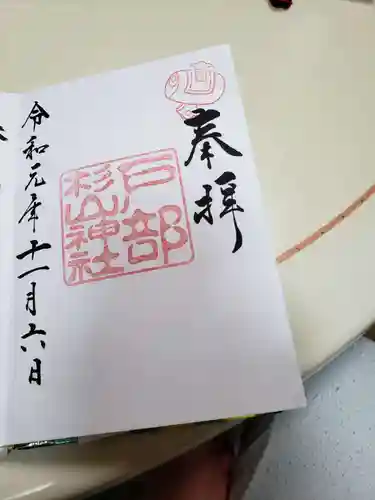 奉拝
戸部
杉山神社
令和元年十一月六日